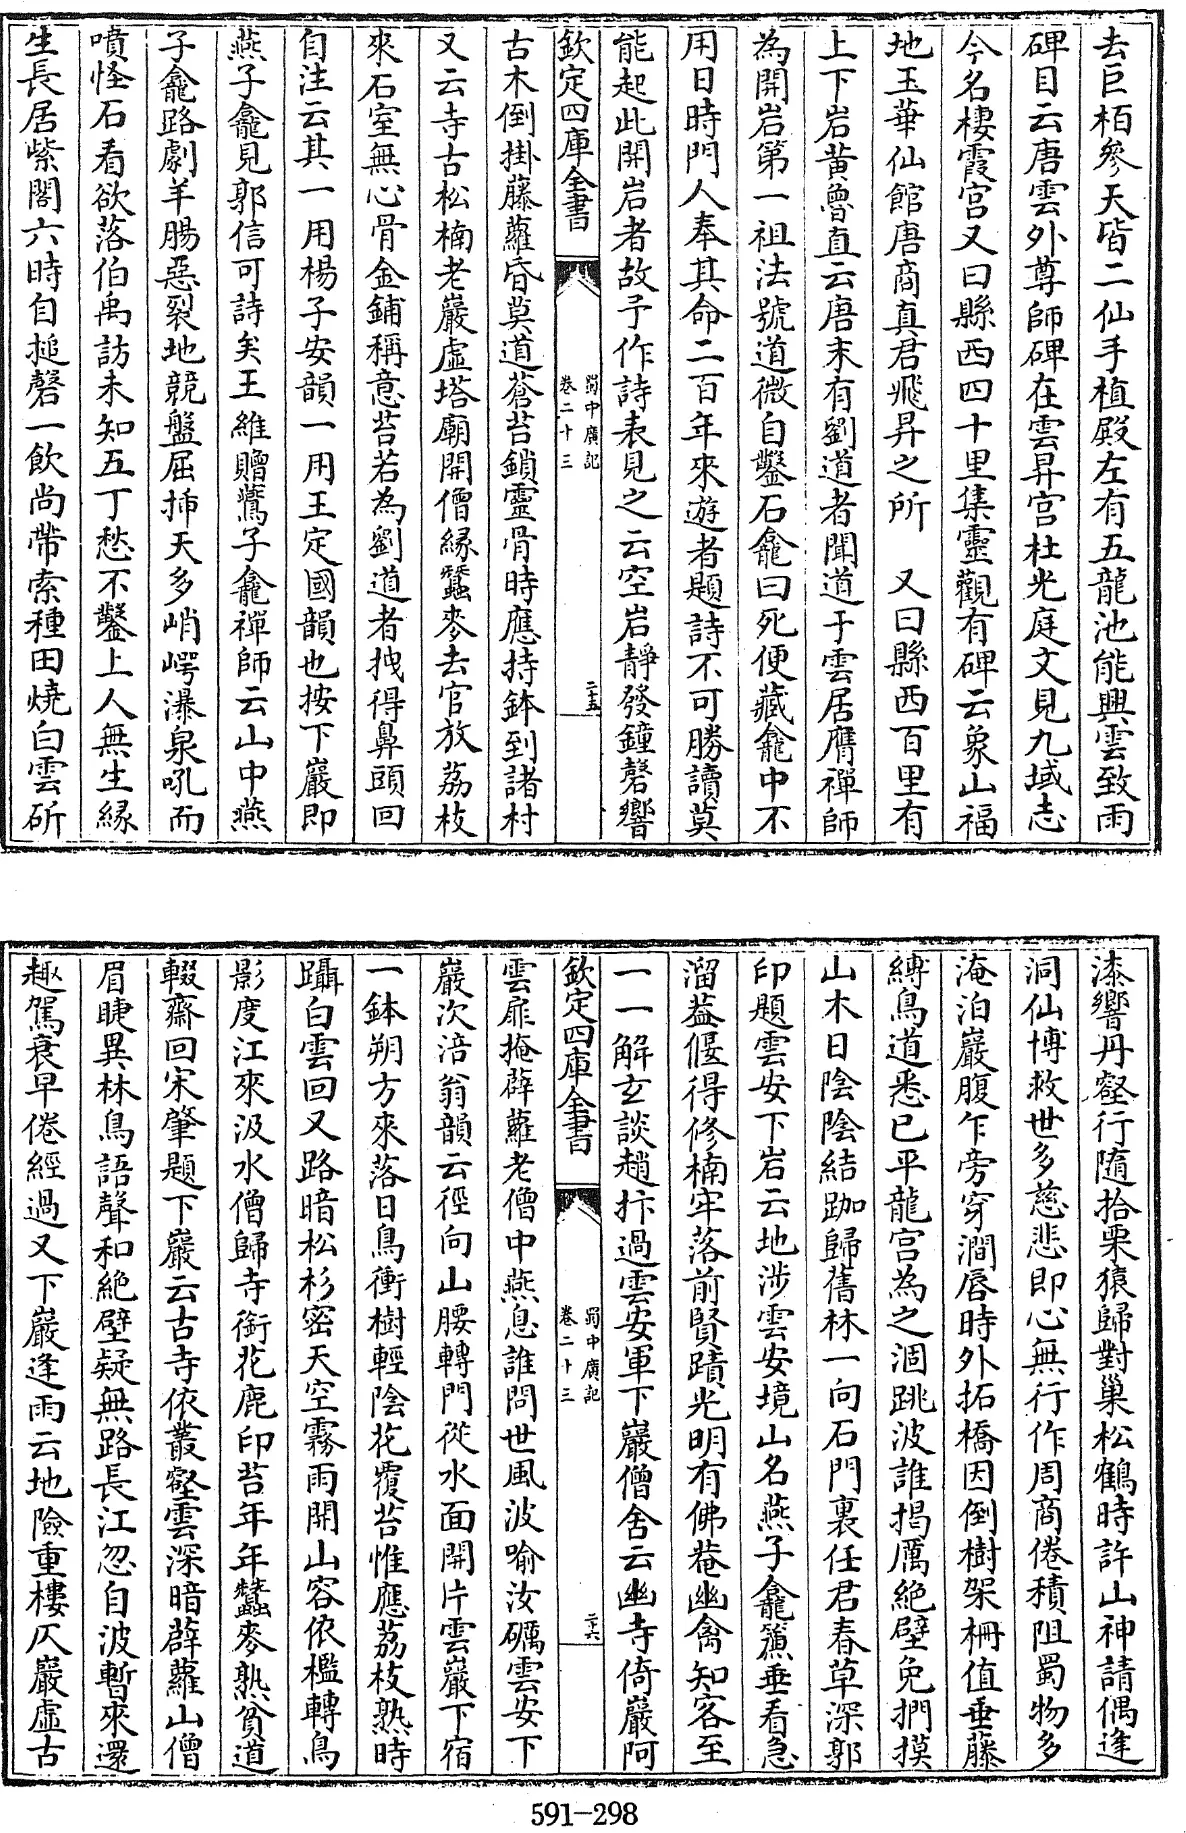 去巨栢參天皆二仙手植殿左有五龍池能興雲致雨
碑目云唐雲外尊師碑在雲昇宫杜光庭文見九域志
今名棲霞宫又曰縣西四十里集靈觀有碑云象山福
地玉華仙館唐商真君飛昇之所　又曰縣西百里有
上下岩黄魯直云唐末有劉道者聞道于雲居膺禪師
為開岩第一祖法號道微自鑿石龕曰死便藏龕中不
用日時門人奉其命二百年來遊者題詩不可勝讀莫
能起此開岩者故予作詩表見之云空岩靜發鐘磬響
欽定四庫全書
蜀中廣記
卷二十三
二十五
古木倒掛藤蘿昏莫道蒼苔鎖靈骨時應持鉢到諸村
又云寺古松楠老巖虚塔廟開僧縁蠶麥去官放荔枝
來石室無心骨金鋪稱意苔若為劉道者拽得鼻頭回
自注云其一用楊子安韻一用王定國韻也按下巖即
燕子龕見郭信可詩矣王維贈鷰子龕禪師云山中燕
子龕路劇羊腸惡裂地競盤屈揷天多峭崿瀑泉吼而
噴怪石看欲落伯禹訪未知五丁愁不鑿上人無生縁
生長居紫閣六時自搥磬一飲尚帶索種田燒白雲斫
漆響丹壑行隨拾栗猿歸對巢松鶴時許山神請偶逢
洞仙博救世多慈悲即心無行作周商倦積阻蜀物多
淹泊巖腹乍旁穿澗唇時外拓橋因倒樹架栅值垂藤
縛鳥道悉已平龍宫為之涸跳波誰揭厲絶壁免捫摸
山木日陰陰結跏歸舊林一向石門裏任君春草深郭
印題雲安下岩云地涉雲安境山名燕子龕簾垂看急
溜葢偃得修楠牢落前賢蹟光明有佛菴幽禽知客至
一一解玄談趙抃過雲安軍下巖僧舍云幽寺倚巖阿
欽定四庫全書
蜀中廣記
卷二十三
二十六
雲扉掩薜蘿老僧中燕息誰問世風波喻汝礪雲安下
巖次涪翁韻云徑向山腰轉門從水面開片雲巖下宿
一鉢朔方來落日鳥衝樹輕陰花覆苔惟應荔枝熟時
躡白雲回又路暗松杉密天空霧雨開山容依檻轉鳥
影度江來汲水僧歸寺銜花鹿印苔年年蠶麥熟貧道
輟齋回宋肇題下巖云古寺依叢壑雲深暗薜蘿山僧
眉睫異林鳥語聲和絶壁疑無路長江忽自波暫來還
趣駕衰早倦經過又下巖逢雨云地險重樓仄巖虚古
591-298